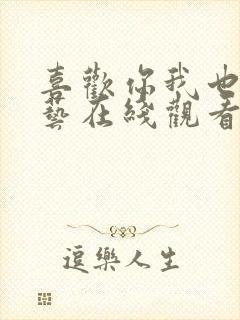 喜歡你我也
藝在綫觀看
逗樂人生